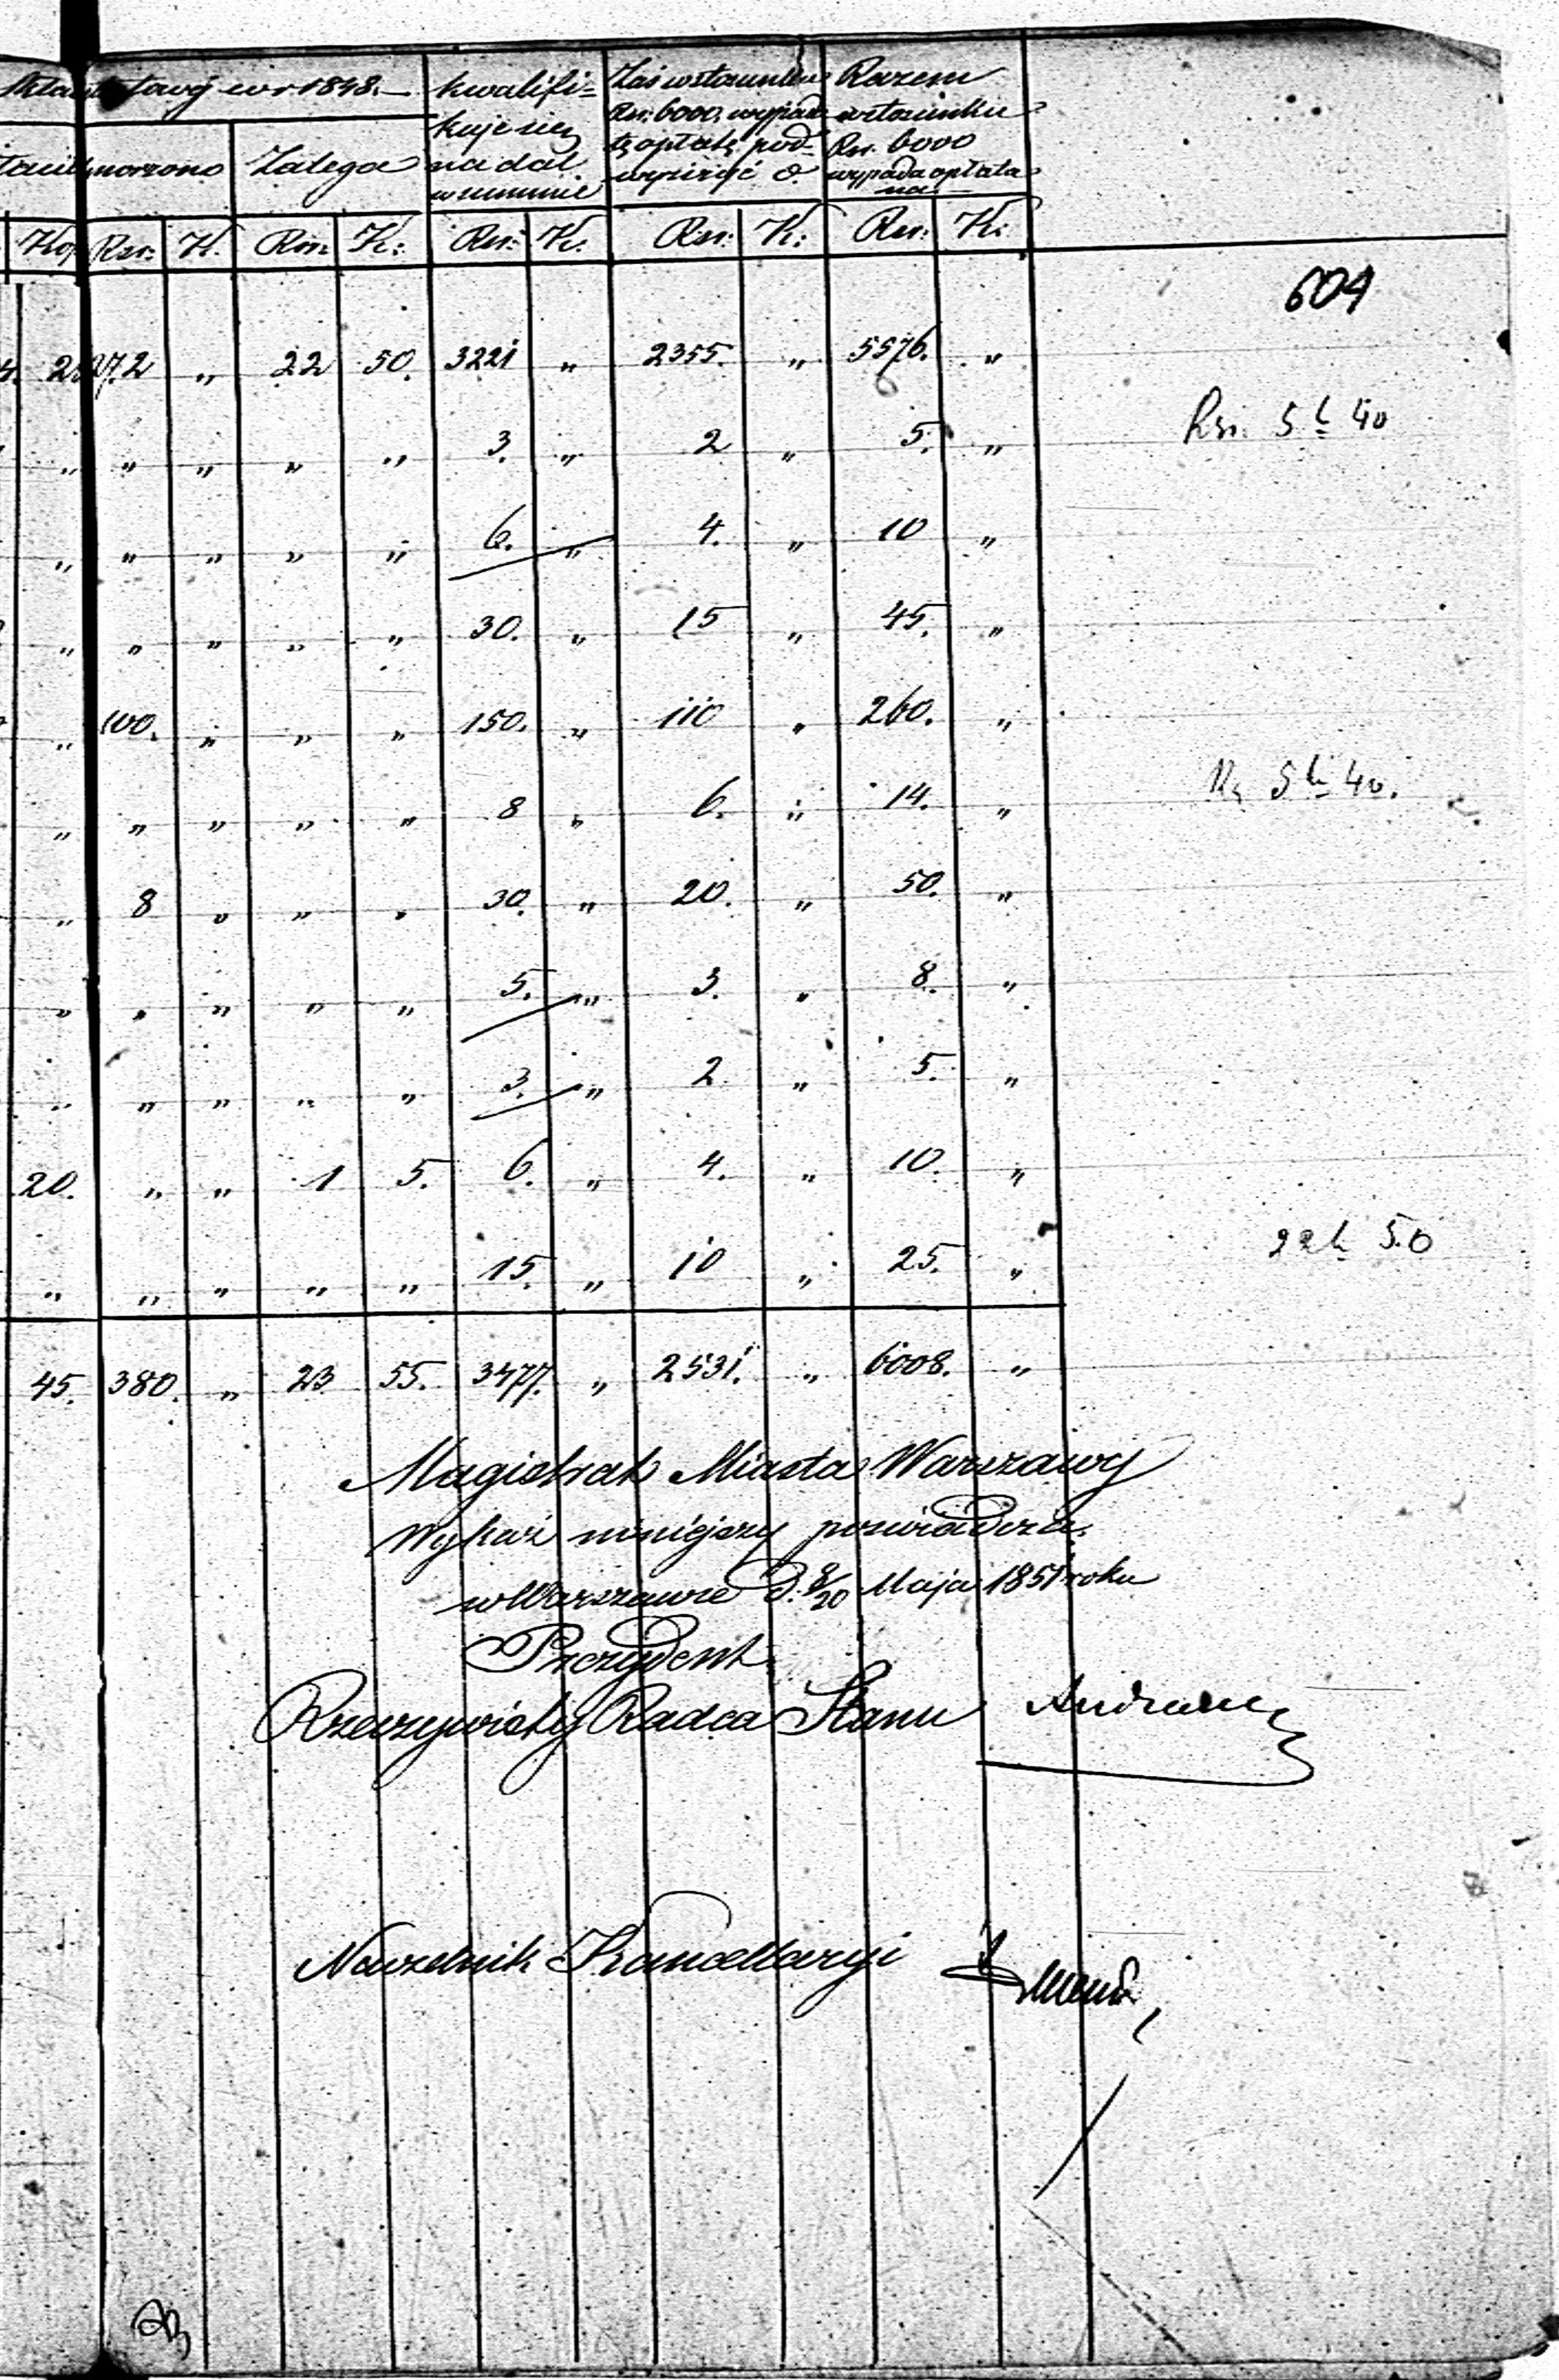 tawy w r 1848.
kwalifi=
kuje się
na dal.
w summie
Zaś w stosunku
Rsr. 6000. wypada
tę opłatę pod=
wyższyć o.
Razem
w stosunku
Rsr. 6000
wypada opłata
na
umorzono Zalega
Kop Rsr. K. Rsr. K: Rsr: K: Rsr: K: Rsr: K:
604
272 „ 22 50. 3221 „ 2355. „ 5576. „
„ „ „ „ „ 3. „ 2 „ 5. „ Rsr. 5 k 40
„ „ „ „ „ 6. „ 4. „ 10 „
„ „ „ „ „ 30. „ 15 „ 45. „
„ 100. „ „ „ 150. „ 110 „ 260. „
„ „ „ „ „ 8 „ 6. „ 14. „ Rs 5 k 40.
„ 8 „ „ „ 30. „ 20. „ 50. „
„ „ „ „ „ 5. „ 3. „ 8. „
„ „ „ „ „ 3. „ 2 „ 5. „
20. „ „ 1 5. 6. „ 4. „ 10. „
„ „ „ „ „ 15. „ 10 „ 25. „ 22 k 50
45. 380. „ 23 55. 3477. „ 2531. „ 6008. „
Magistrat Miasta Warszawy
Wykaz niniejszy poswiadcza.
w Warszawie d. 8/20 Maja 1851 roku
Prezydent
Rzeczywisty Radca Stanu Andrault
Naczelnik Kancellaryi